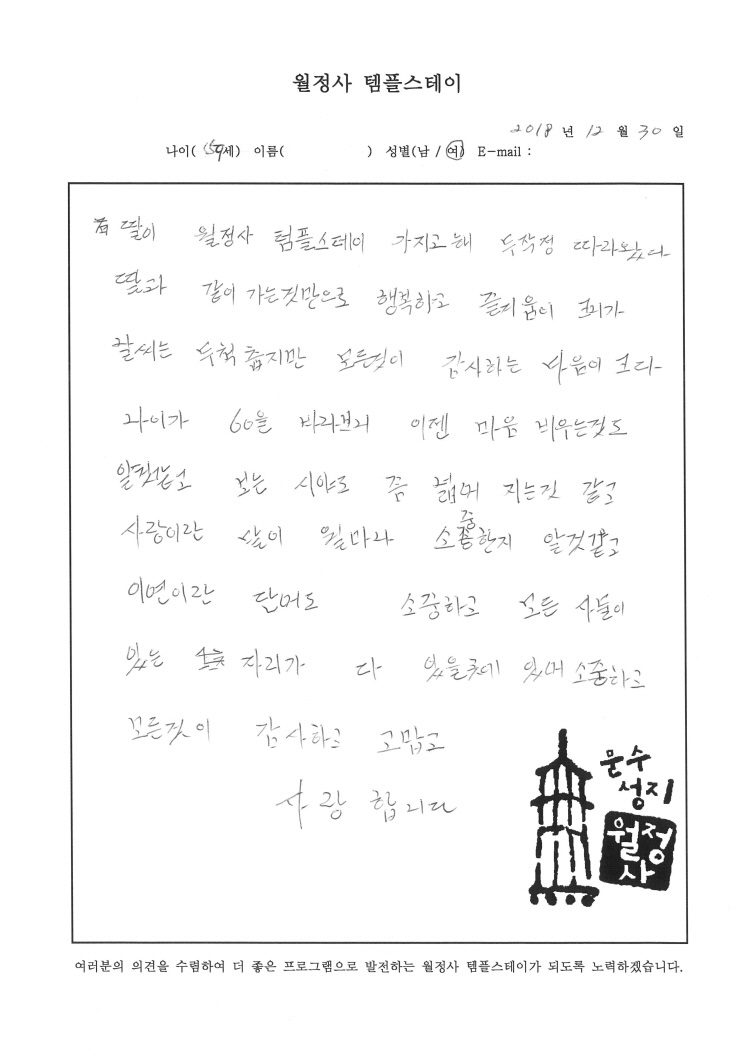 월정사 템플스테이
2018 년 12 월 30 일
나이( 59세) 이름( ) 성별(남 / 여) E-mail :
딸이 월정사 텀플스테이 가지고해 두작정 따라왔다
딸과 같이 가는것만으로 행복하고 즐거움이 크다
날씨는 무척 춥지만 모든것이 감사하는 마음이 크다
나이가 60을 바라보니 이젠 마음 비우는것도
알것같고 보는 시야도 좀 넓어 지는것 같고
사랑이란 말이 얼마나 소중한지 알것같고
이연이란 단어도 소중하고 모든 사들이
있는 자리가 다 있을곳에 있어 소중하고
모든것이 감사하고 고맙고
사랑 합니다
문수
성지
월정
사
여러분의 의견을 수렴하여 더 좋은 프로그램으로 발전하는 월정사 템플스테이가 되도록 노력하겠습니다.